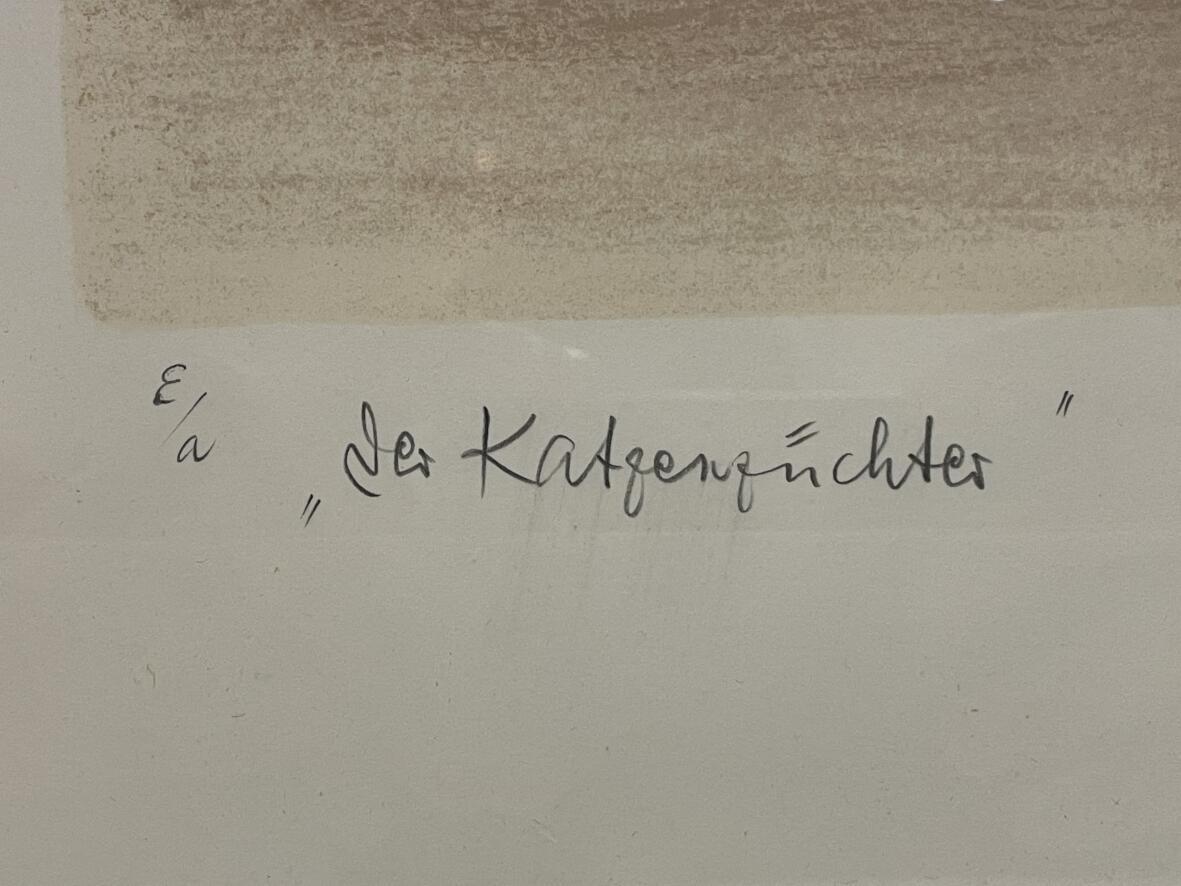 E/a
„Der Katzenzüchter"